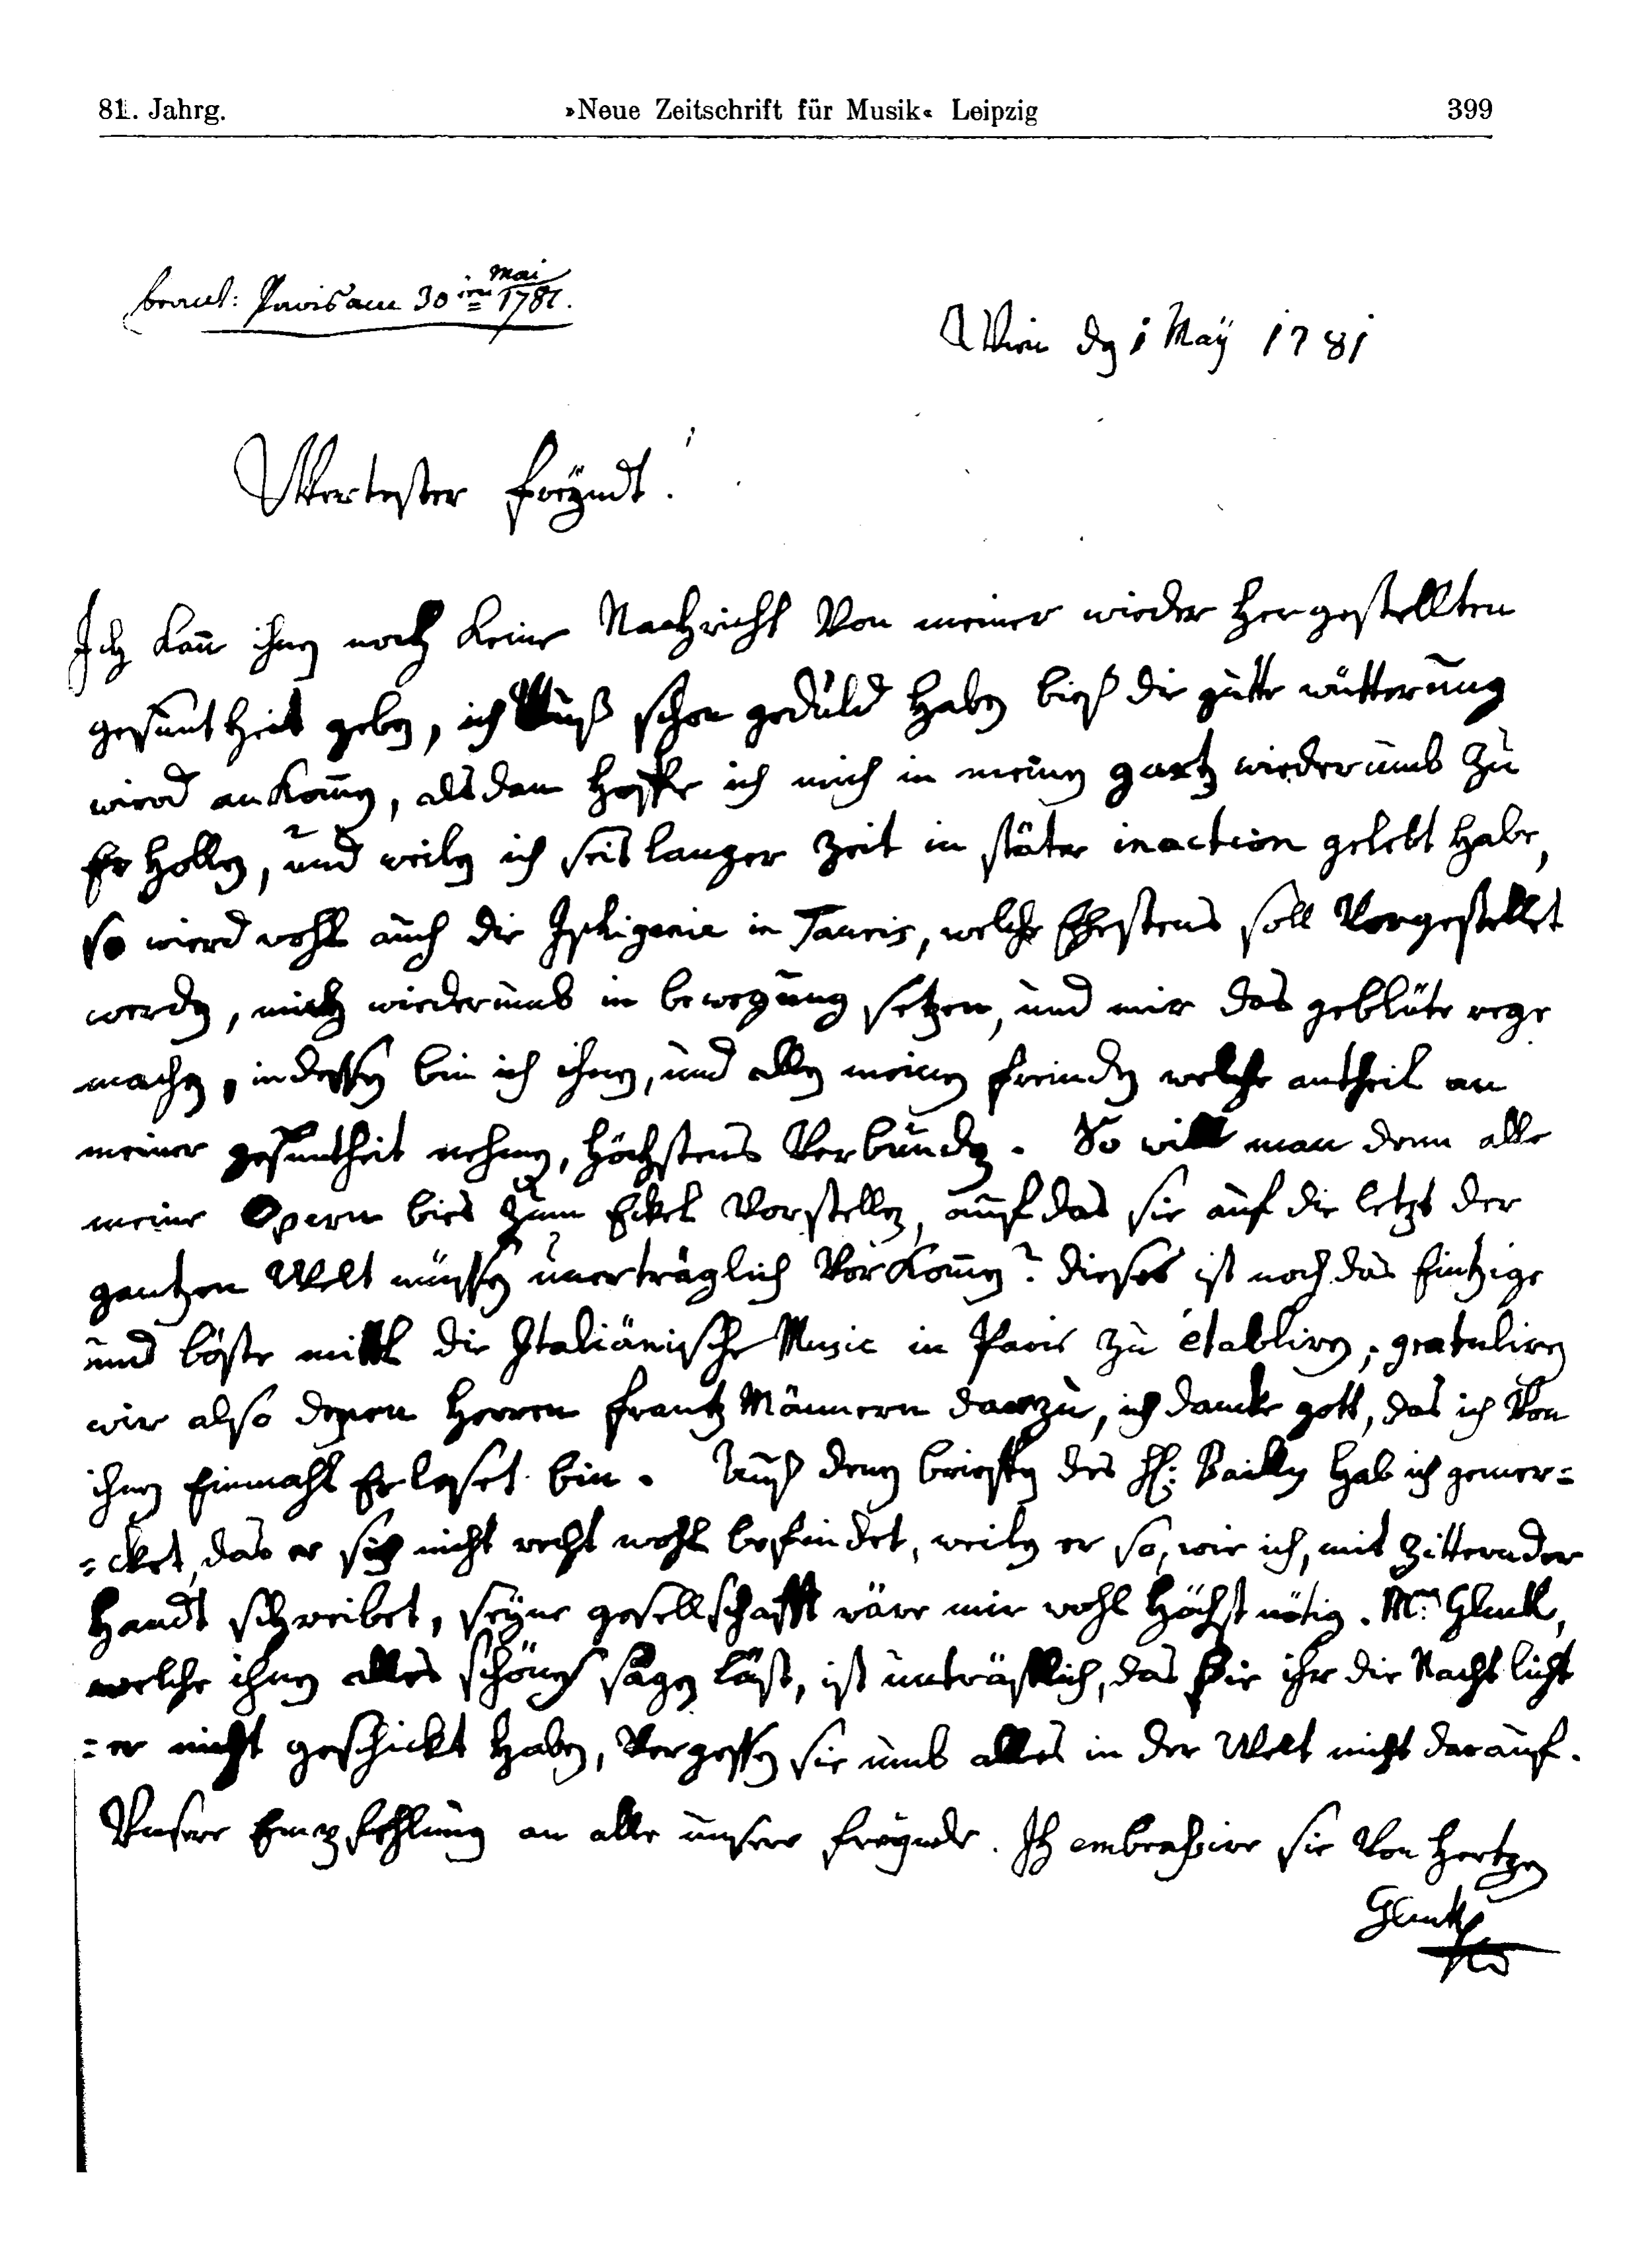 81. Jahrg. »Neue Zeitschrift für Musik« Leipzig 399
beant: Paris am 30 ten Mai 1781.
Wien den 1 Maÿ 1781
Wertester freÿndt!
Ich kan̄ ihnen noch keine Nachricht Von meiner wieder her gestellten
gesuntheit geben, ich Muß schon geduld haben bieß die gutte wütterung
wierd ankom̄en, als dan hoffe ich mich in meinen gartz wiederumb zu
Er hollen, und weilen ich seit langer zeit in stäter inaction gelebt habe,
so wierd wohl auch die Iphigenie in Tauris, welche Ehestens soll Vorgestellet
werden, mich wiederumb in bewegung setzen, und mir das geblüte rege
machen, indessen bin ich ihnen, und allen meinen freinden welche antheil an
meiner gesuntheit nehmen, höchstens Verbunden. So will man denn alle
meine Opern bies zum Eckel Vorstellen, auf das sie auf die letzt der
gantzen Welt müssen unerträglich Vorkom̄en? dieses ist noch das Eintzige
und böste mittl die Italiänische Music in Paris zu établiren, gratuliren
wir also denen Herren frantz Männern darzu, ich dancke gott, das ich Von
ihnen Einmahl Erleset bin. Auß denen brieffen des H: Bailly hab ich gemer=
=cket, das er sich nicht recht wohl befindet, weilen er so, wie ich, mit zitternder
handt schreibet, seÿne gesellschafft wäre mir wohl höchst nötig. M: Gluck,
welche ihnen alles schönes sagen läst, ist untröstlich, das Sie ihr die Nacht licht
=er nicht geschickt haben, Vergessen sie umb alles in der Welt nicht darauf.
Unsere Empfehlung an alle unsere freÿnde. Ich embrassire sie Von hertzen
Gluck